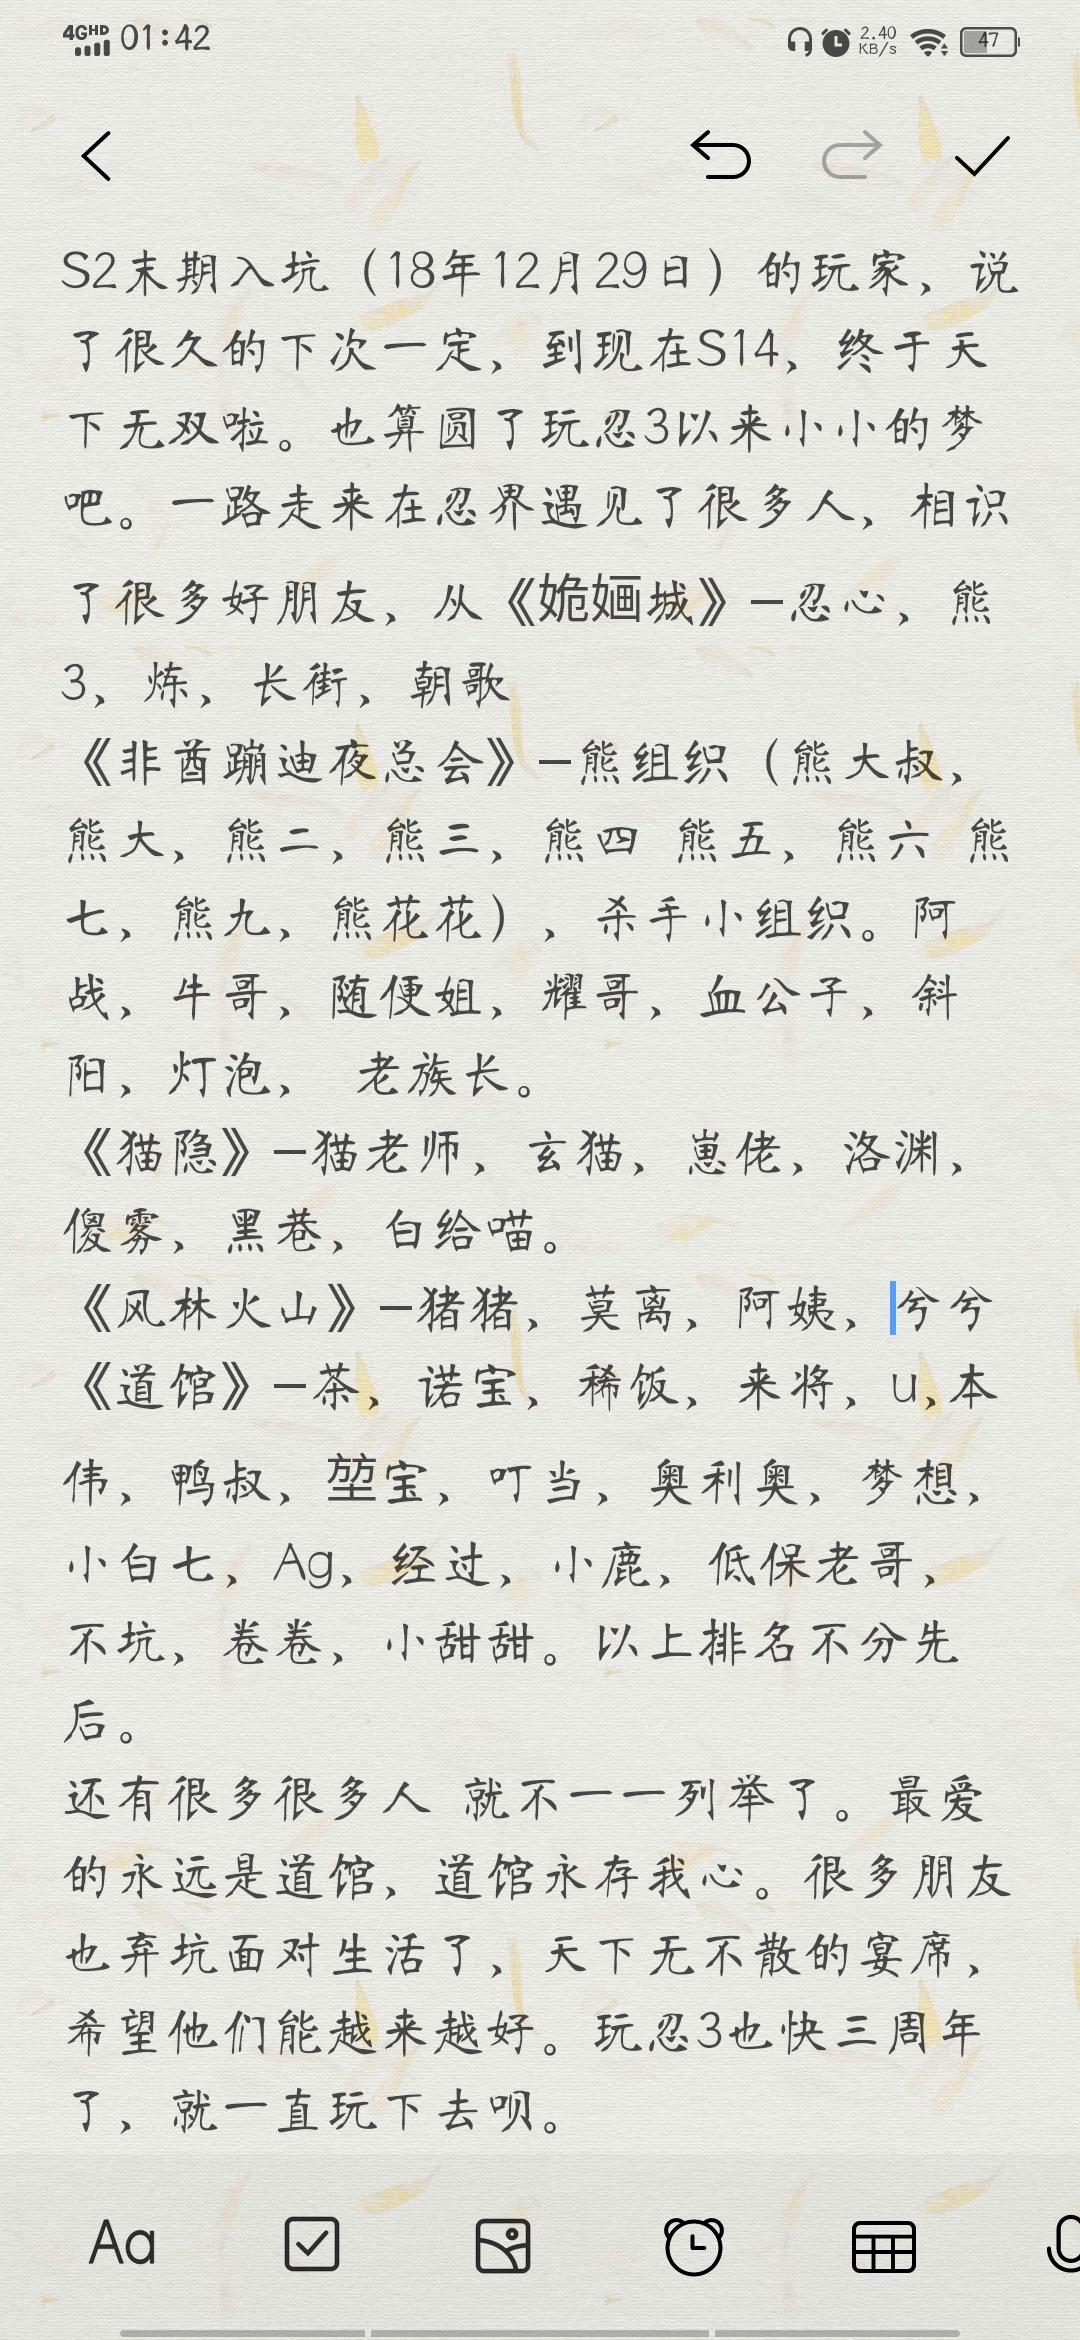 4GHD 01:42 2.40 KB/s 47
S2末期入坑（18年12月29日）的玩家，说
了很久的下次一定，到现在S14，终于天
下无双啦。也算圆了玩忍3以来小小的梦
吧。一路走来在忍界遇见了很多人，相识
了很多好朋友，从《姽婳城》—忍心，熊
3、炼、长街、朝歌
《非酋蹦迪夜总会》—熊组织（熊大叔，
熊大、熊二、熊三、熊四 熊五、熊六 熊
七、熊九、熊花花）、杀手小组织。阿
战、牛哥、随便姐、耀哥、血公子、斜
阳、灯泡、 老族长。
《猫隐》—猫老师，玄猫，崽佬，洛渊，
傻雾、黑巷、白给喵。
《风林火山》—猪猪，莫离，阿姨，兮兮
《道馆》—茶，诺宝，稀饭，来将，u,本
伟、鸭叔、堃宝、叮当、奥利奥、梦想，
小白七，Ag、经过、小鹿、低保老哥、
不坑，卷卷、小甜甜。以上排名不分先
后。
还有很多很多人 就不一一列举了。最爱
的永远是道馆，道馆永存我心。很多朋友
也弃坑面对生活了，天下无不散的宴席，
希望他们能越来越好。玩忍3也快三周年
了，就一直玩下去呗。
Aa